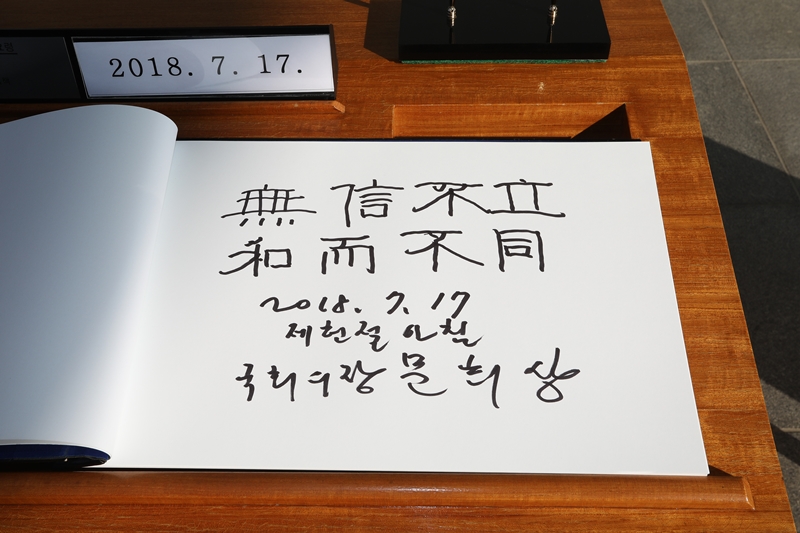 2018. 7. 17.
無信不立
和而不同
2018. 7. 17
제헌절 아침
국회의장 문희상